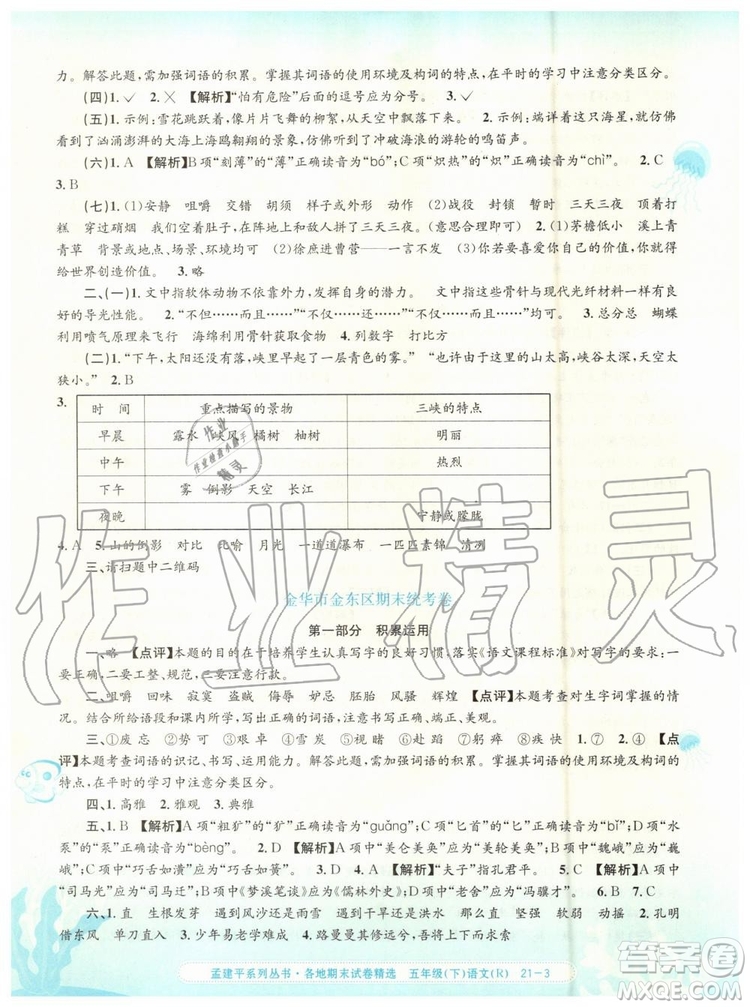 力。解答此题,需加强词语的积累。掌握其词语的使用环境及构词的特点,在平时的学习中注意分类区分。
(四)1.✓ 2.✕ 【解析】“怕有危险”后面的逗号应为分号。 3.✓
(五)1.示例:雪花跳跃着,像片片飞舞着的柳条,从天空中飘落下来。 2.示例:端详着这只海星,我仿佛
看到了汹涌澎湃的大海上海鸥翱翔的景象,仿佛听到了冲破海浪的游轮的鸣笛声。
(六)1.A 【解析】B项“刻薄”的“薄”正确读音为“bó”;C项“炽热”的“炽”正确读音为“chì”。 2.C
3.B
(七)1.(1)安静 咀嚼 例外 或许 外形 动作 (2)战役 封锁 暂时 三天三夜 (3)找着打
糕 穿过硝烟 我们空着肚子,在阵地上和敌人拼了三天三夜。(意思合理即可) 2.(1)茅檐低小 溪上青
青草 背景或地点、场景、环境均可 (2)徐庶进曹营——一言不发 (3)人只有认识到自己的价值,你就得
给世界创造价值。 3.略
二、(一)1.文中指软体动物不依靠外力,发挥自己的力量。 文中指这些骨针与现代光纤材料一样良
好的导光性能。 2.“不但……而且……”还有“不仅……还……”“不仅……而且……”均可。 3.总分总 蝴蝶
利用喷气原理来飞行 海绵利用骨针获取食物 4.列数字 打比方
(二)1.“下午,太阳还没有落,峡里早起了一层青色的雾。” “也许由于这里的山太高,峡谷太深,天空太
狭小。” 2.B
3.
时 间 重点描写的景物 三峡的特点
早晨 露水 峡风 橘树 柚树 明丽
中午 热烈
下午 雾 倒影 天空 长江
夜晚 宁静或朦胧
4.A 5.山的倒影 对比 比喻 月光 一道道瀑布 一匹匹素锦 清冽
三、请扫题中二维码
金华市金东区期末统考卷
第一部分 积累运用
一、略 【点评】本题的目的在于培养学生认真写字的良好习惯,落实《语文课程标准》对写字的要求:一
要工正,二要工整,三要注意行款。
二、咀嚼 回味 寂寞 盗贼 侮辱 妒忌 胚胎 风骚 辉煌 【点评】本题考查对生字词掌握的情
况。结合所给拼音及课内所学,写出正确的词语,书写时做到正确、端正、美观。
三、①废 ②忘 ③荡 ④漾 ⑤梦 ⑥寐 ⑦烦 ⑧疾 ⑨疚 1.⑦⑤ 2.④③ 【点
评】本题考查词语的识记、书写、运用能力。解答此题,需加强词语的积累。掌握其词语的使用环境及构词的
特点,在平时的学习中注意分类区分。
四、1.高雅 2.雅观 3.典雅
五、1.B 【解析】A项“粗犷”的“犷”正确读音为“guǎng”;C项“匕首”的“匕”正确读音为“bǐ”;D项“水
泵”的“泵”正确读音为“bèng”。 2.D 【解析】A项中“美仑美奂”应为“美轮美奂”;B项中“魏峨”应为“巍峨”;C
项中“巧舌如潢”应为“巧舌如簧”。 3.A 4.A 【解析】“夫子”指孔君平。 5.C 6.B 【解析】A项中
“司马光”应为“司马迁”;C项中《梦溪笔谈》应为《儒林外史》;D项中“老舍”应为“冯骥才”。 7.B 8.B
六、1.直 生根发芽 遇到风沙还是雨雪 遇到干旱还是洪水 那么直 坚强 软弱 动摇 2.孔明
借东风 单刀直入
孟建平系列丛书·各地期末试卷精选 五年级(下)语文(R) 21-3
作业精灵
答案圈